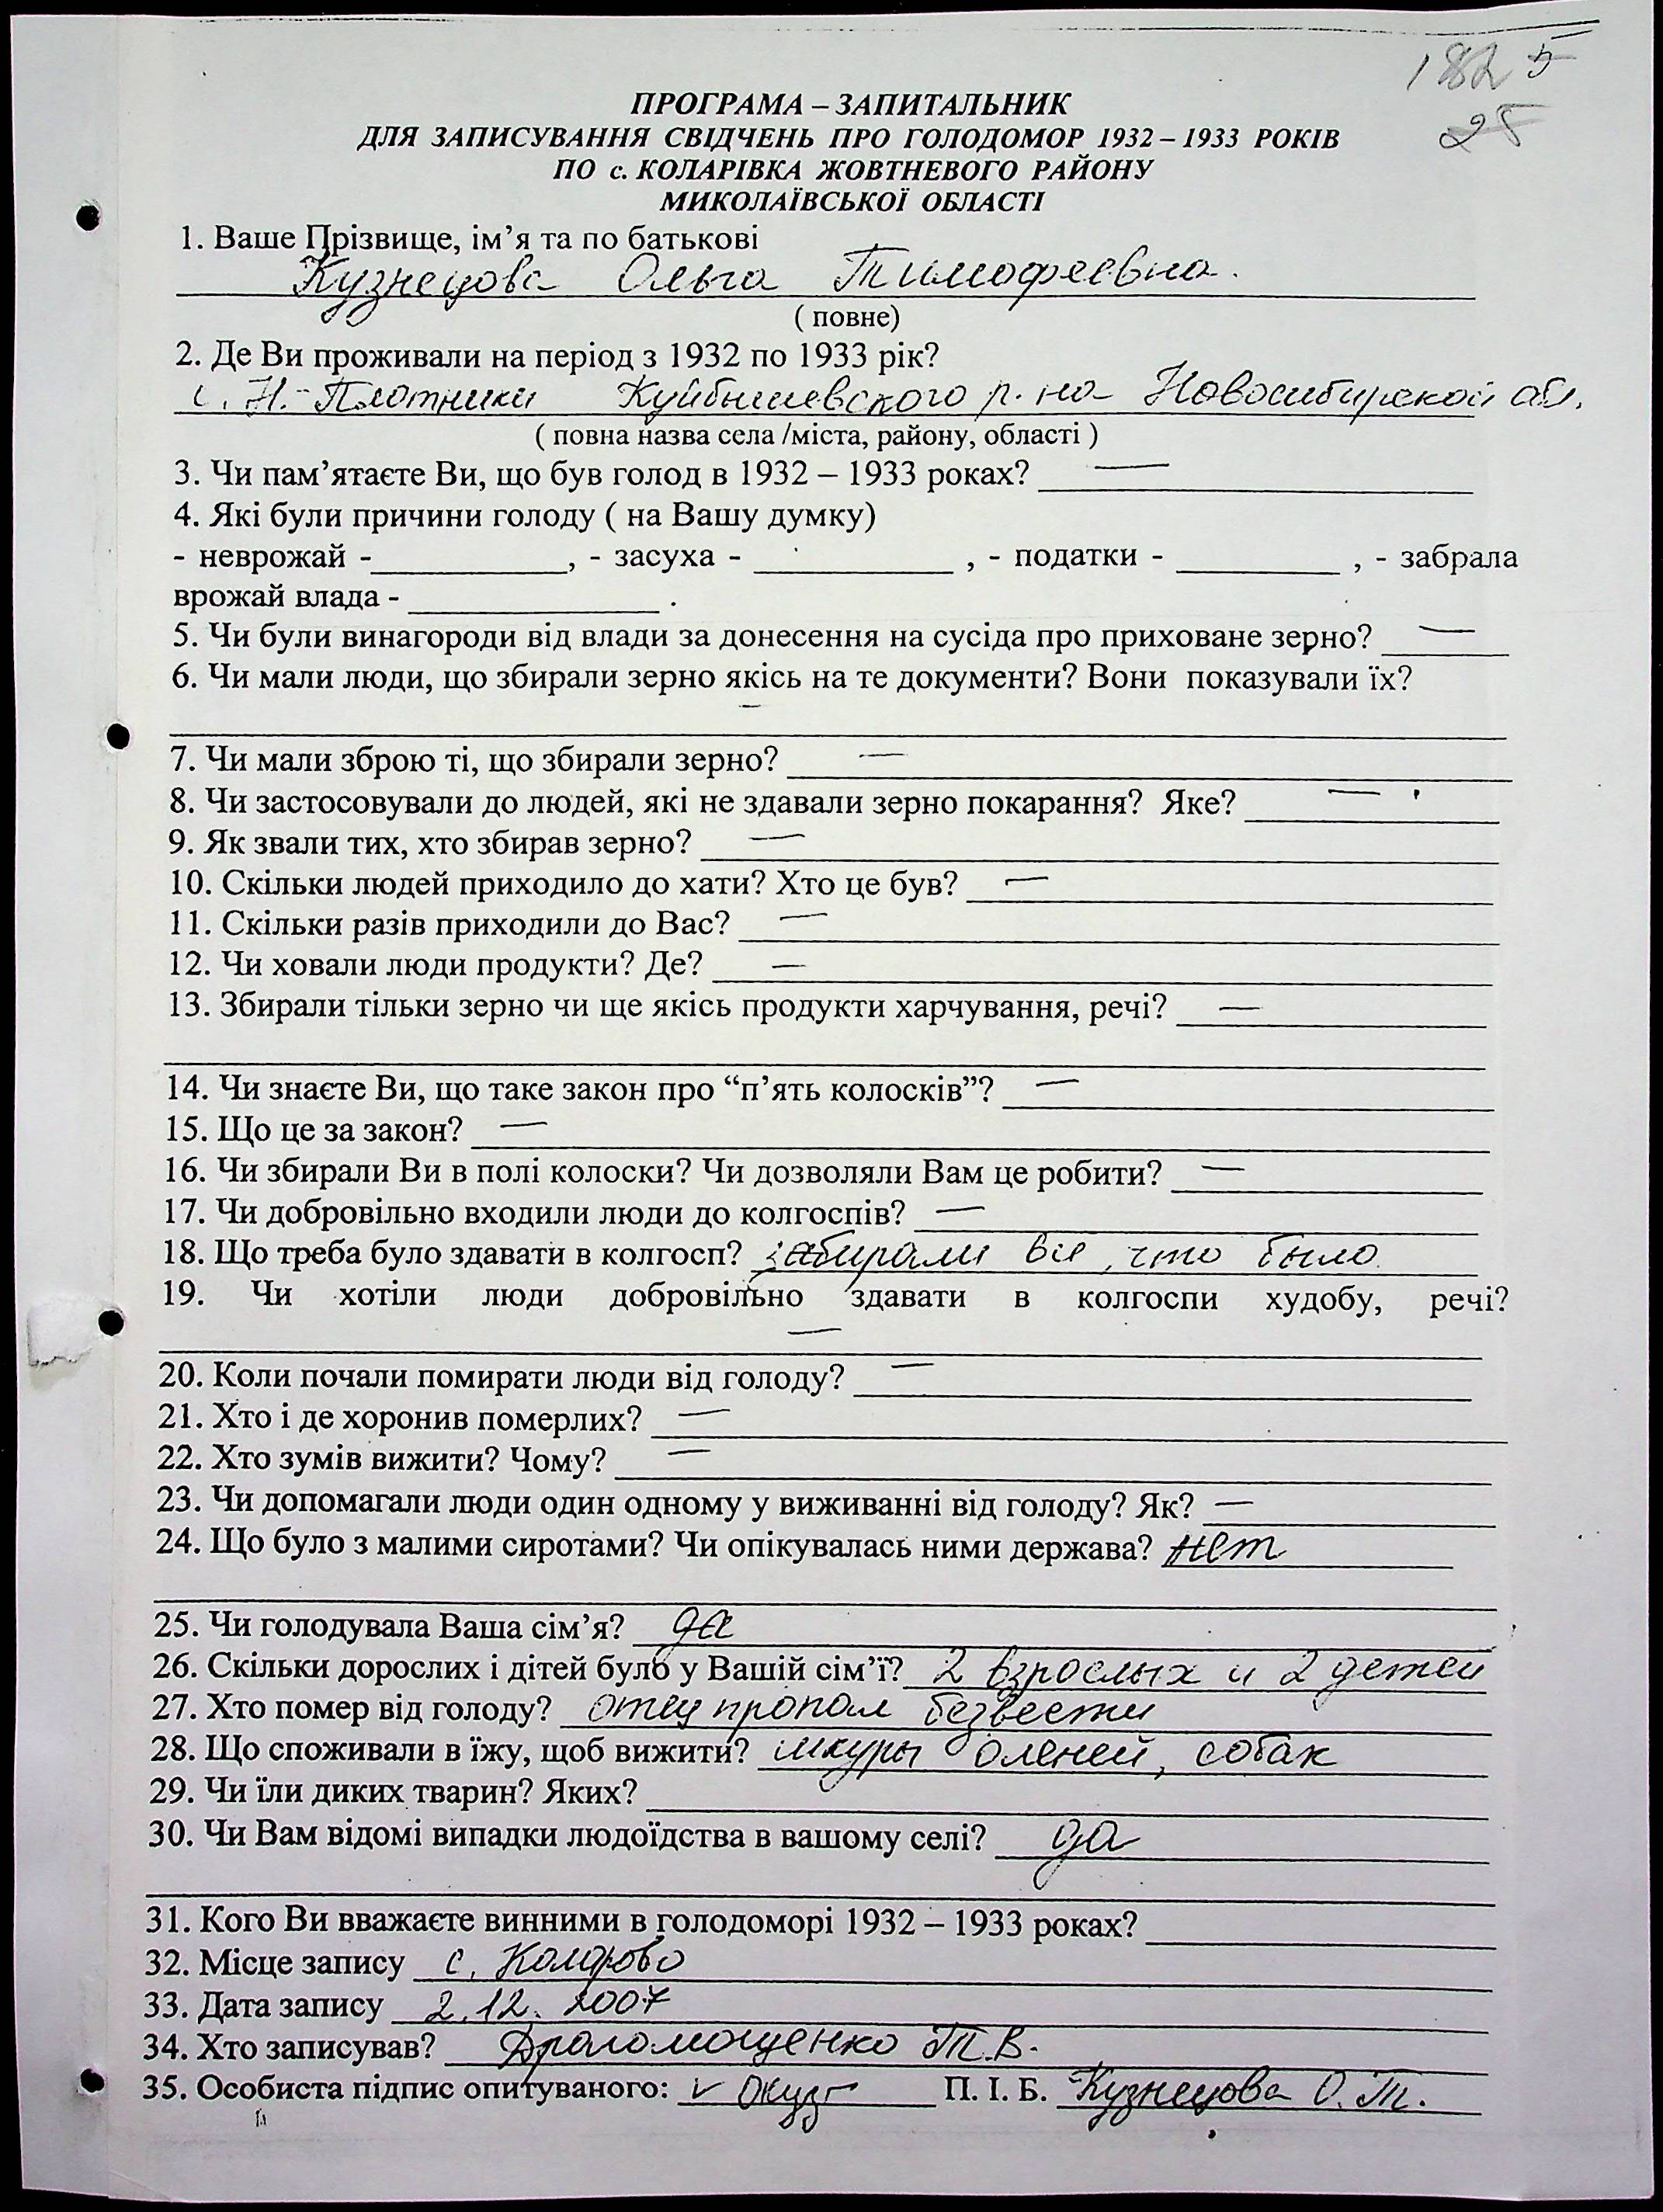 182 5
25
ПРОГРАМА – ЗАПИТАЛЬНИК
ДЛЯ ЗАПИСУВАННЯ СВІДЧЕНЬ ПРО ГОЛОДОМОР 1932 – 1933 РОКІВ
ПО с. КОЛАРІВКА ЖОВТНЕВОГО РАЙОНУ
МИКОЛАЇВСЬКОЇ ОБЛАСТІ
1. Ваше Прізвище, ім’я та по батькові
Кузнецова Ольга Тимофеевна.
( повне)
2. Де Ви проживали на період з 1932 по 1933 рік?
с. Н.-Плотники Куйбышевского р-на Новосибирской обл.
( повна назва села /міста, району, області )
3. Чи пам’ятаєте Ви, що був голод в 1932 – 1933 роках? —
4. Які були причини голоду ( на Вашу думку)
- неврожай -__________, - засуха - __________ , - податки - ________ , - забрала
врожай влада - ____________ .
5. Чи були винагороди від влади за донесення на сусіда про приховане зерно? —
6. Чи мали люди, що збирали зерно якісь на те документи? Вони показували їх?
–
7. Чи мали зброю ті, що збирали зерно? —
8. Чи застосовували до людей, які не здавали зерно покарання? Яке? —
9. Як звали тих, хто збирав зерно? —
10. Скільки людей приходило до хати? Хто це був? —
11. Скільки разів приходили до Вас? —
12. Чи ховали люди продукти? Де? —
13. Збирали тільки зерно чи ще якісь продукти харчування, речі? —
14. Чи знаєте Ви, що таке закон про “п’ять колосків”? —
15. Що це за закон? —
16. Чи збирали Ви в полі колоски? Чи дозволяли Вам це робити? —
17. Чи добровільно входили люди до колгоспів? —
18. Що треба було здавати в колгосп? забирали все, что было
19. Чи хотіли люди добровільно здавати в колгоспи худобу, речі?
—
20. Коли почали помирати люди від голоду? —
21. Хто і де хоронив померлих? —
22. Хто зумів вижити? Чому? —
23. Чи допомагали люди один одному у виживанні від голоду? Як? —
24. Що було з малими сиротами? Чи опікувалась ними держава? нет
25. Чи голодувала Ваша сім’я? да
26. Скільки дорослих і дітей було у Вашій сім’ї? 2 взрослых и 2 детей
27. Хто помер від голоду? отец пропал безвести
28. Що споживали в їжу, щоб вижити? шкуры оленей, собак
29. Чи їли диких тварин? Яких?
30. Чи Вам відомі випадки людоїдства в вашому селі? да
31. Кого Ви вважаєте винними в голодоморі 1932 – 1933 роках?
32. Місце запису с. Коларово
33. Дата запису 2.12. 2007
34. Хто записував? Драгомощенко Т.В.
35. Особиста підпис опитуваного: v Окуз П. І. Б. Кузнецова О.Т.